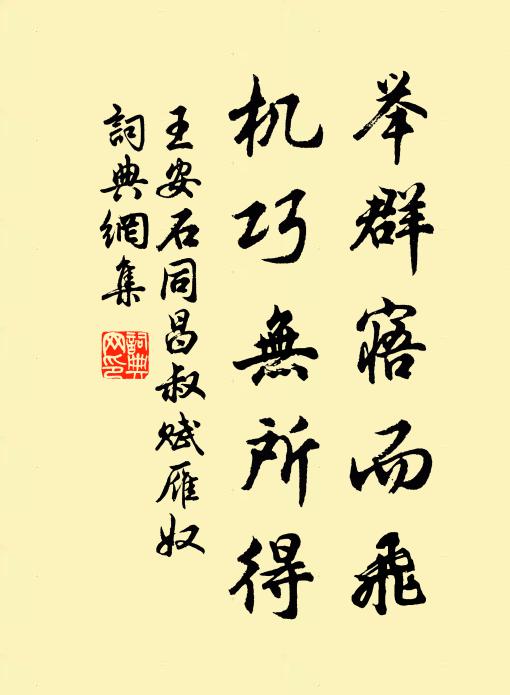 举群寤而飛
机巧無所得
王安石同昌叔赋雁奴
詞典網集
詞典网印